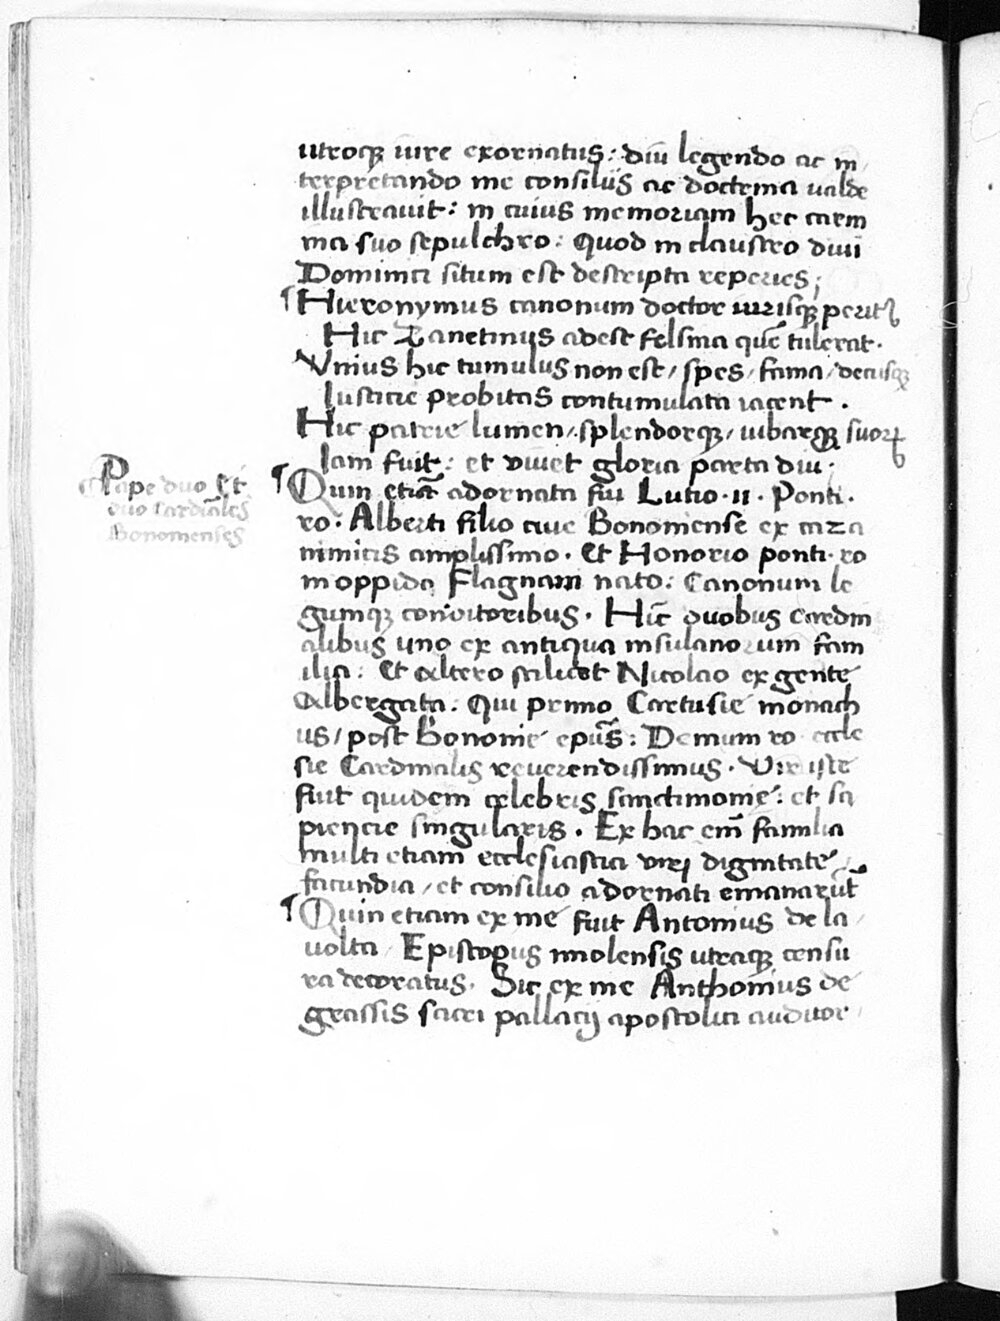 utroq iure exornatus: diu legendo ac in
terpretando me consiliis ac doctrina valde
illustrauit: in cuius memoriam hec carm
ina suo sepulchro: Quod in claustro diui
Dominici situm est descripta reperies;
¶ Hieronymus canonum doctor iurisq perit
Hic Zanetinus adest felsina que tulerat.
Vnius hic tumulus non est / spes / fama / decusq
Iusticie probitas contumulata iacent.
Hic patrie lumen / splendorq / iubarq suor
Iam fuit: et viuet gloria parta diu.
Pape duo Et
duo Cardiales
Bononienses
¶ Quin etiā adornata fui Lutio .II. Ponti.
ro. Alberti filio ciue Bononiense ex caza
nimicis amplissimo. Et Honorio ponti. ro
in oppido Flagnani nato: Canonum le
gumq conditoribus. Hīc duobus Cardin
alibus uno ex antiqua insulanorum fam
ilia: Et altero scilicet Nicolao ex gente
Albergata: Qui primo Cartusie monach
us / post Bononie epūs: Demum ro. eccle
sie Cardinalis reuerendissimus. Vir iste
fuit quidem celebris sanctimonie: et sa
piencie singularis. Ex hac em̄ familia
multi etiam ecclesiastica viri dignitate /
facundia / et consilio adornati emanarūt
¶ Quin etiam ex me fuit Antonius de la
uolta / Episcopus imolensis utraq censu
ra decoratus. Sic ex me Anthonius de
grassis sacri pallacij apostolici auditor